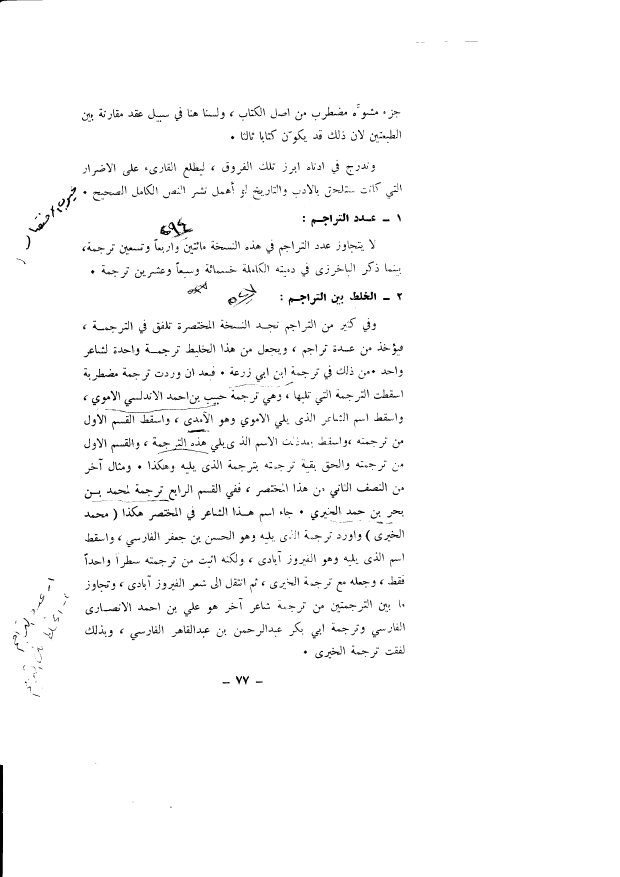 جزء مشوّه مضطرب من اصل الكتاب ، ولسنا هنا في سبيل عقد مقارنة بين
الطبعتين لان ذلك قد يكوّن كتابا ثالثا •
وندرج في ادناه ابرز تلك الفروق ، ليطلع القارىء على الاضرار
التي كانت ستلحق بالادب والتاريخ لو أهمل نشر النص الكامل الصحيح •
١ ــ عدد التراجم :
٢٩٤
لا يتجاوز عدد التراجم في هذه النسخة مائتين واربعاً وتسعين ترجمة،
بينما ذكر الباخرزى في دميته الكاملة خمسمائة وسبعاً وعشرين ترجمة •
٢ ــ الخلط بين التراجم :
٥٢٧
وفي كثير من التراجم نجد النسخة المختصرة تلفق في الترجمة ،
فيؤخذ من عدة تراجم ، ويجعل من هذا الخليط ترجمة واحدة لشاعر
واحد •من ذلك في ترجمة ابن ابي زرعة • فبعد ان وردت ترجمة مضطربة
اسقطت الترجمة التي تليها ، وهي ترجمة حبيب بن احمد الاندلسي الاموي ،
واسقط اسم الشاعر الذى يلي الاموي وهو الآمدى ، واسقط القسم الاول
من ترجمته ،واسقط بعدئذ الاسم الذى يلي هذه الترجمة ، والقسم الاول
من ترجمته والحق بقية ترجمته بترجمة الذى يليه وهكذا • ومثال آخر
من النصف الثاني من هذا المختصر ، ففي القسم الرابع ترجمة لمحمد بن
بحر بن حمد الخيري • جاء اسم هذا الشاعر في المختصر هكذا ( محمد
الخيرى ) واورد ترجمة الذى يليه وهو الحسن بن جعفر الفارسي ، واسقط
اسم الذى يليه وهو الفيروز آبادى ، ولكنه اثبت من ترجمته سطراً واحداً
فقط ، وجعله مع ترجمة الخيرى ، ثم انتقل الى شعر الفيروز آبادى ، وتجاوز
ما بين الترجمتين من ترجمة شاعر آخر هو علي بن احمد الانصارى
الفارسي وترجمة ابي بكر عبدالرحمن بن عبدالقاهر الفارسي ، وبذلك
لفقت ترجمة الخيرى •
١- عدد التراجم
٢- الخلط بين التراجم
– ٧٧ –